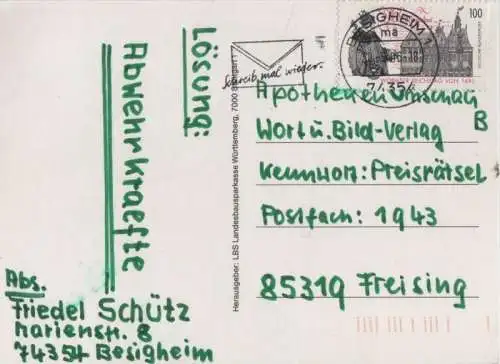 Lösung:
Abwehrkraefte
Abs.
Friedel Schütz
Marienstr. 8
74354 Besigheim
Herausgeber: LBS Landesbausparkasse Württemberg, 7000 Stuttgart 1
Schreib mal wieder.
BESIGHEIM 1
ma
74354
100
WORMSER REICHSTAG VON 1495
Apotheken Umschau
B
Wort u. Bild-Verlag
Kennwort: Preisrätsel
Postfach: 1943
85319 Freising